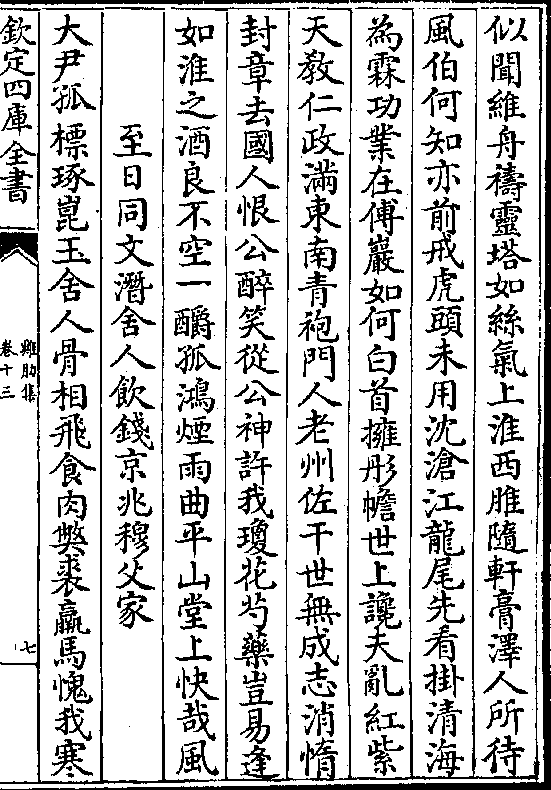 似聞維舟禱靈塔如絲氣上淮西脽隨軒膏澤人所待
風伯何知亦前戒虎頭未用沈滄江龍尾先看掛清海
為霖功業在傅巖如何白首擁彤幨世上讒夫亂紅紫
天教仁政滿東南青袍門人老州佐干世無成志消惰
封章去國人恨公醉笑從公神許我瓊花芍藥豈易逢
如淮之酒良不空一酹孤鴻煙雨曲平山堂上快哉風
至日同文潛舍人飲錢京兆穆父家
大尹孤標琢崑玉舍人骨相飛食肉獘裘羸馬愧我寒
欽定四庫全書
雞肋集
卷十三
七